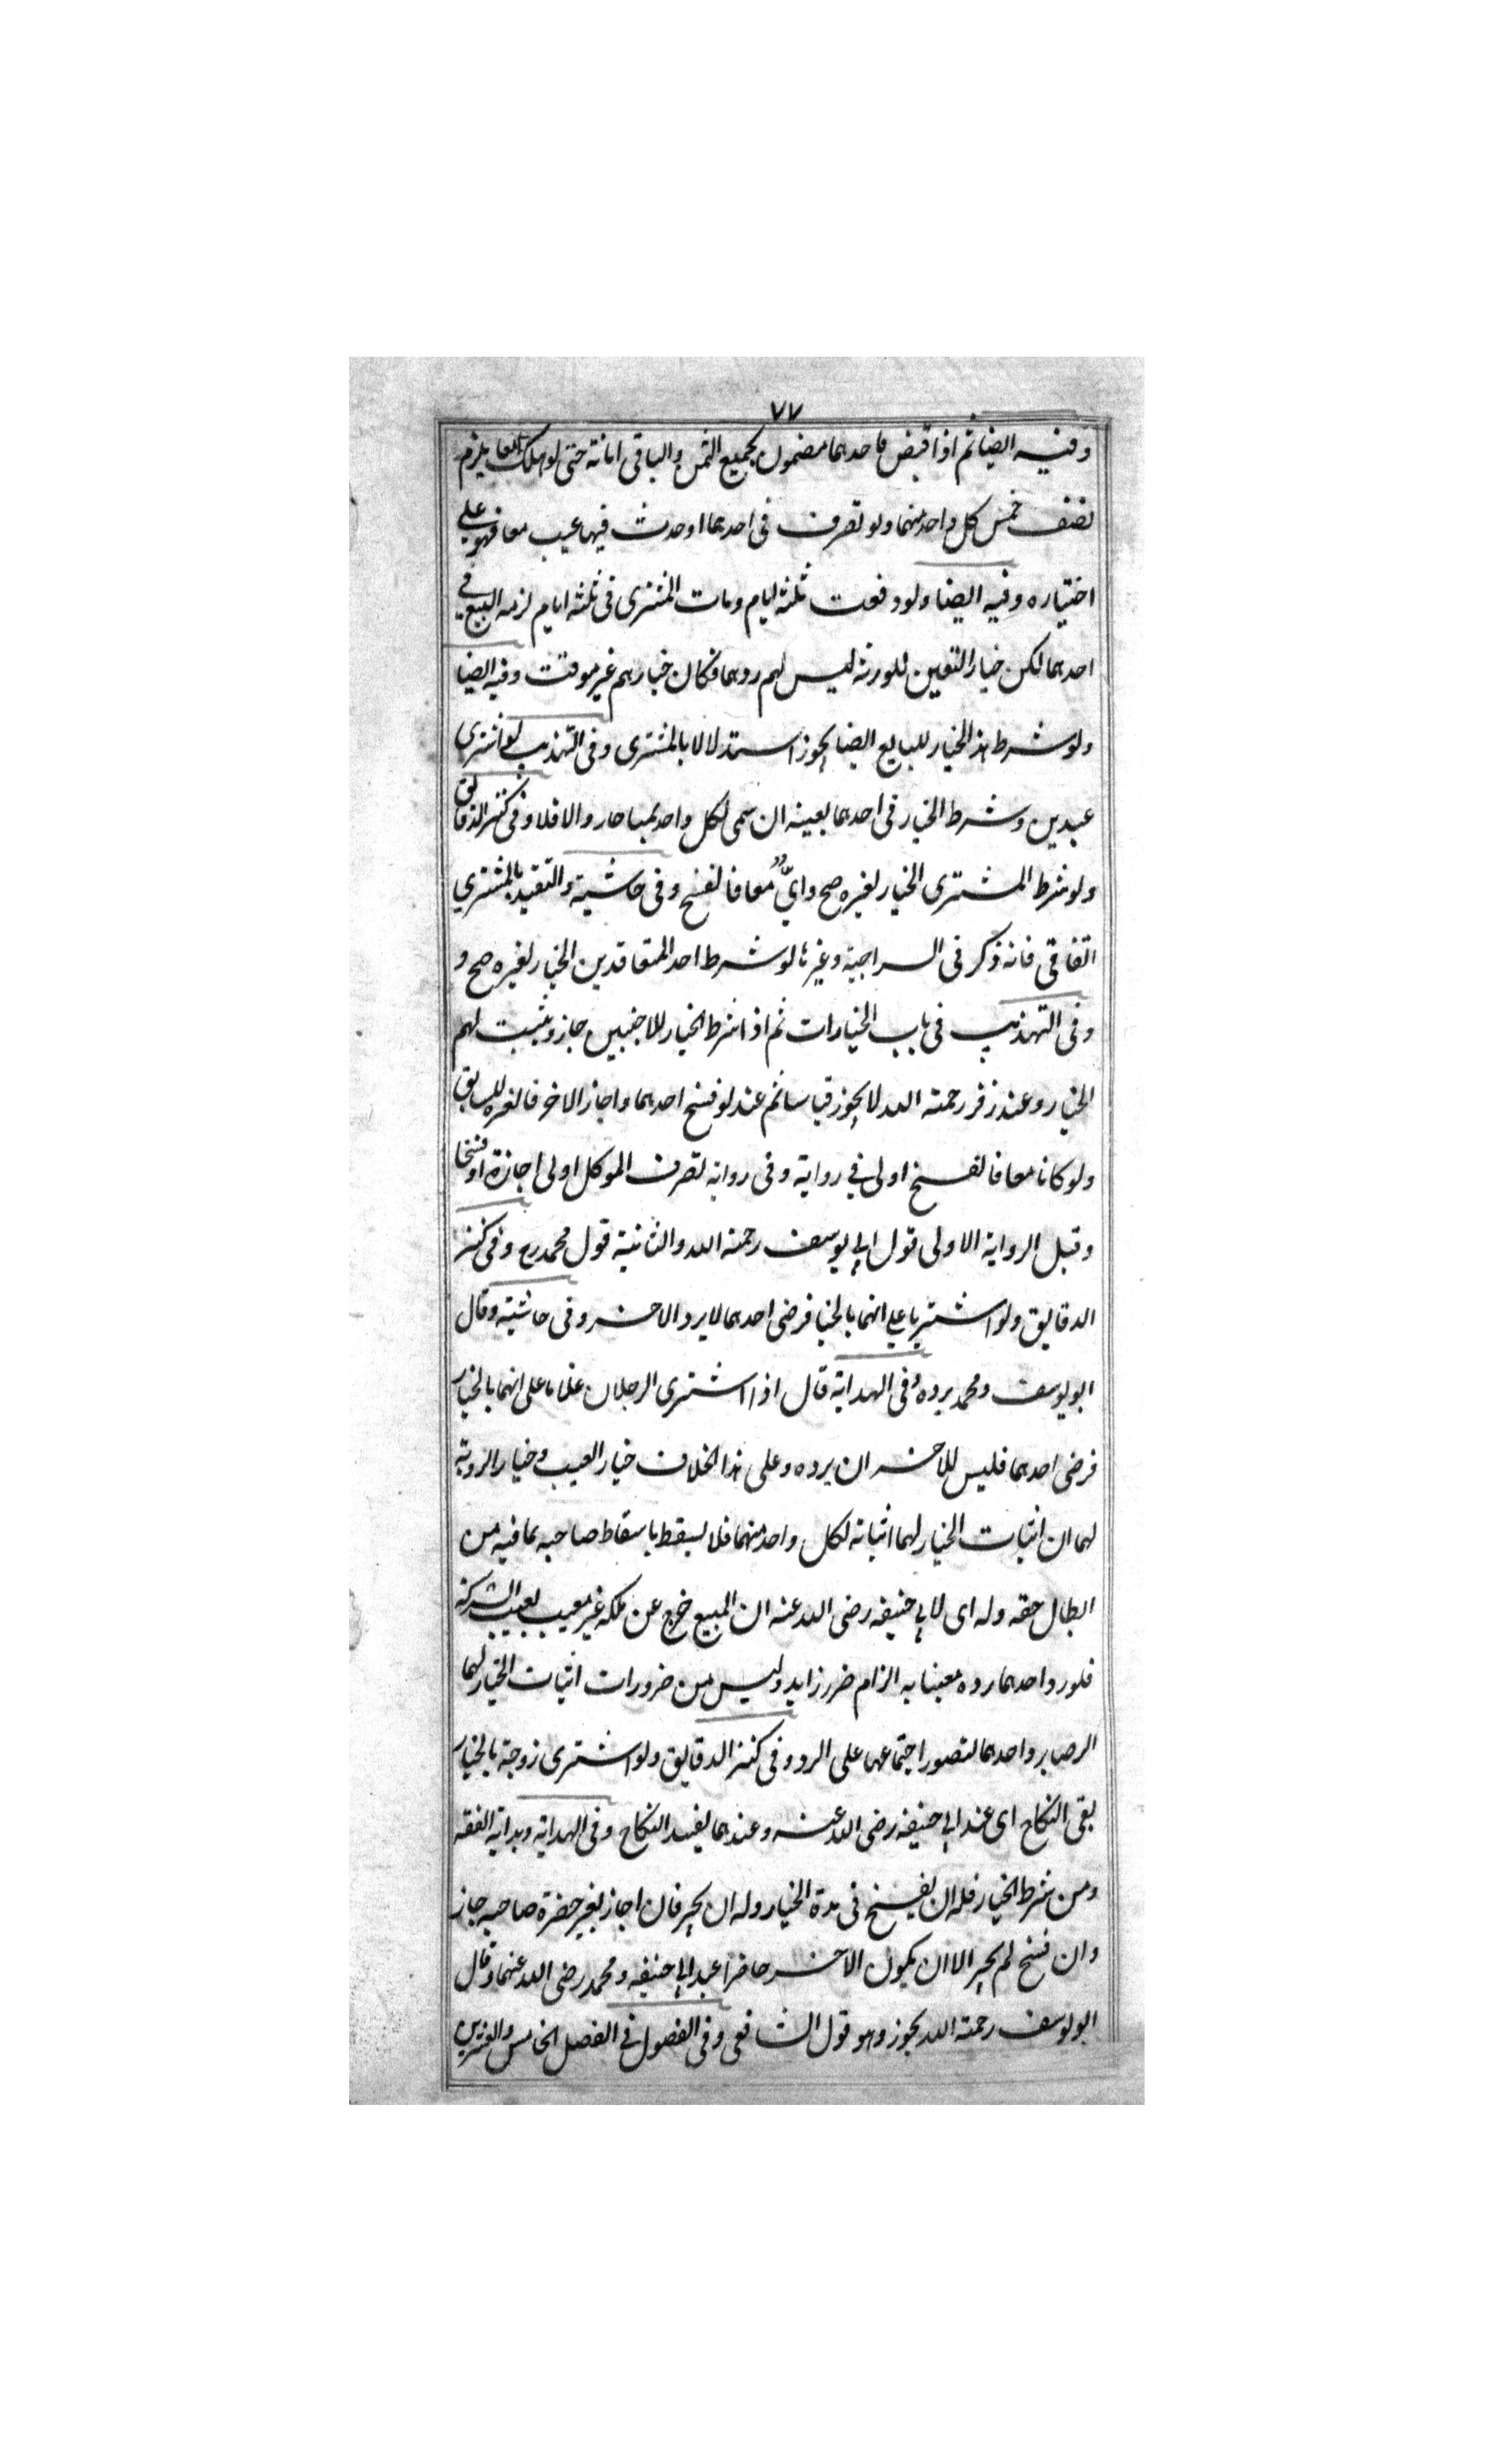 ٧٧
وفيه ايضا ثم اذا قبض فاحدهما مضمون بجميع الثمن والباقى امانة حتى لو هلك معا يلزم
نصف ثمن كل واحد منهما ولو تصرف فى احدهما او حدث فيهما عيب معا فهو على
اختياره وفيه ايضا ولو وقعت ثلثة ايام ومات المشترى فى ثلثة ايام لزمه البيع فى
احدهما لكن خيار التعين للورثة ليس لهم ردهما فكان خيارهم غير موقتت وفيه ايضا
ولو شرط هذ الخيار للبايع ايضا يجوز استدلالا بالمشترى وفى التهذيب لو اشترى
عبدين وشرط الخيار فى احدهما بعينه ان سمى لكل واحد ثمنا جاز والا فلا وفى كنز الدقايق
ولو شرط المشترى الخيار لغيره صح واىّ معا فالفسخ وفى حاشية والتقيد بالمشترى
اتفاقى فانه ذكر فى السراجية وغيرها لو شرط احد المتعاقدين الخيار لغيره صح و
وفى التهذيب فى باب الخيارات ثم اذا شرط الخيار للاجنبيين جاز ويثبت لهم
الخيار وعند زفر رحمة الله لا يجوز قياسا ثم عند لو فسخ احدهما واجاز الاخر فالعبره للسابق
ولو كانا معا فالفسخ اولى فى رواية وفى روايه تصرف الموكل اولى اجازة او فسخا
وقيل الرواية الاولى قول ابى يوسف رحمة الله والثانية قول محمد رح وفى كنز
الدقايق ولو اشتريا على انهما بالخيار فرضى احدهما لا يرد الاخر وفى حاشيته وقال
ابو يوسف ومحمد يرده وفى الهداية قال اذا اشترى الرجلان غلاما على انهما بالخيار
فرضى احدهما فليس للاخر ان يرده وعلى هذا الخلاف خيار العيب وخيار الروية
لهما ان اثبات الخيار لهما اثباته لكل واحد منهما فلا يسقط باسقاط صاحبه بما فيه من
ابطال حقه وله اى لابى حنيفه رضى الله عنه ان المبيع خرج عن ملكه غير معيب بعيب الشركة
فلو رد احدهما رده معيبا به الزام ضرر زايد وليس من ضرورات اثبات الخيار لهما
الرضا برد احدهما لتصور اجتماعهما على الرد وفى كنز الدقايق ولو اشترى زوجة بالخيار
بقى النكاح اى عند ابى حنيفه رضى الله عنه وعندهما يفسد النكاح وفى الهداية وبداية الفقه
ومن شرط الخيار فله ان يفسخ فى مدة الخيار وله ان يجيز فان اجاز بغير حضرة صاحبه جاز
وان فسخ لم يجز الا ان يكون الاخر حاضرا عند ابى حنيفه ومحمد رضى الله عنهما وقال
ابو يوسف رحمة الله يجوز وهو قول الشافعى وفى الفصول فى الفصل الخامس والعشرين